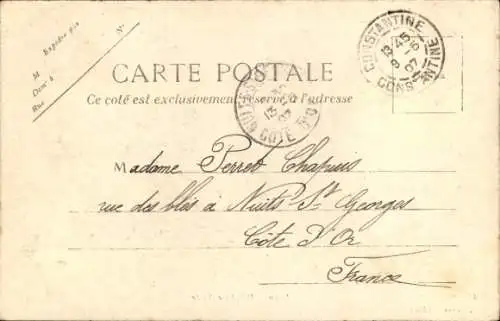 Expédié par
M
Dem.t à
Rue
N°
CARTE POSTALE
Ce côté est exclusivement réservé à l'adresse
CONSTANTINE
CONSTANTINE
COTE D'O
Madame Perret Chapuis
rue des blés à Nuits St Georges
Côte D'Or
France